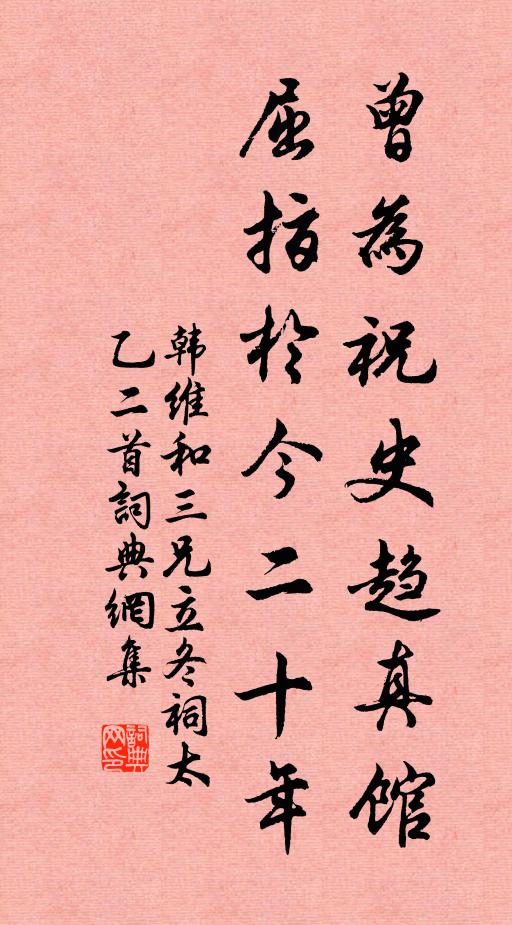 曾為祝史趋真馆
屈指於今二十年
韩维和三兄立冬祠太
乙二首詞典網集
詞典网印